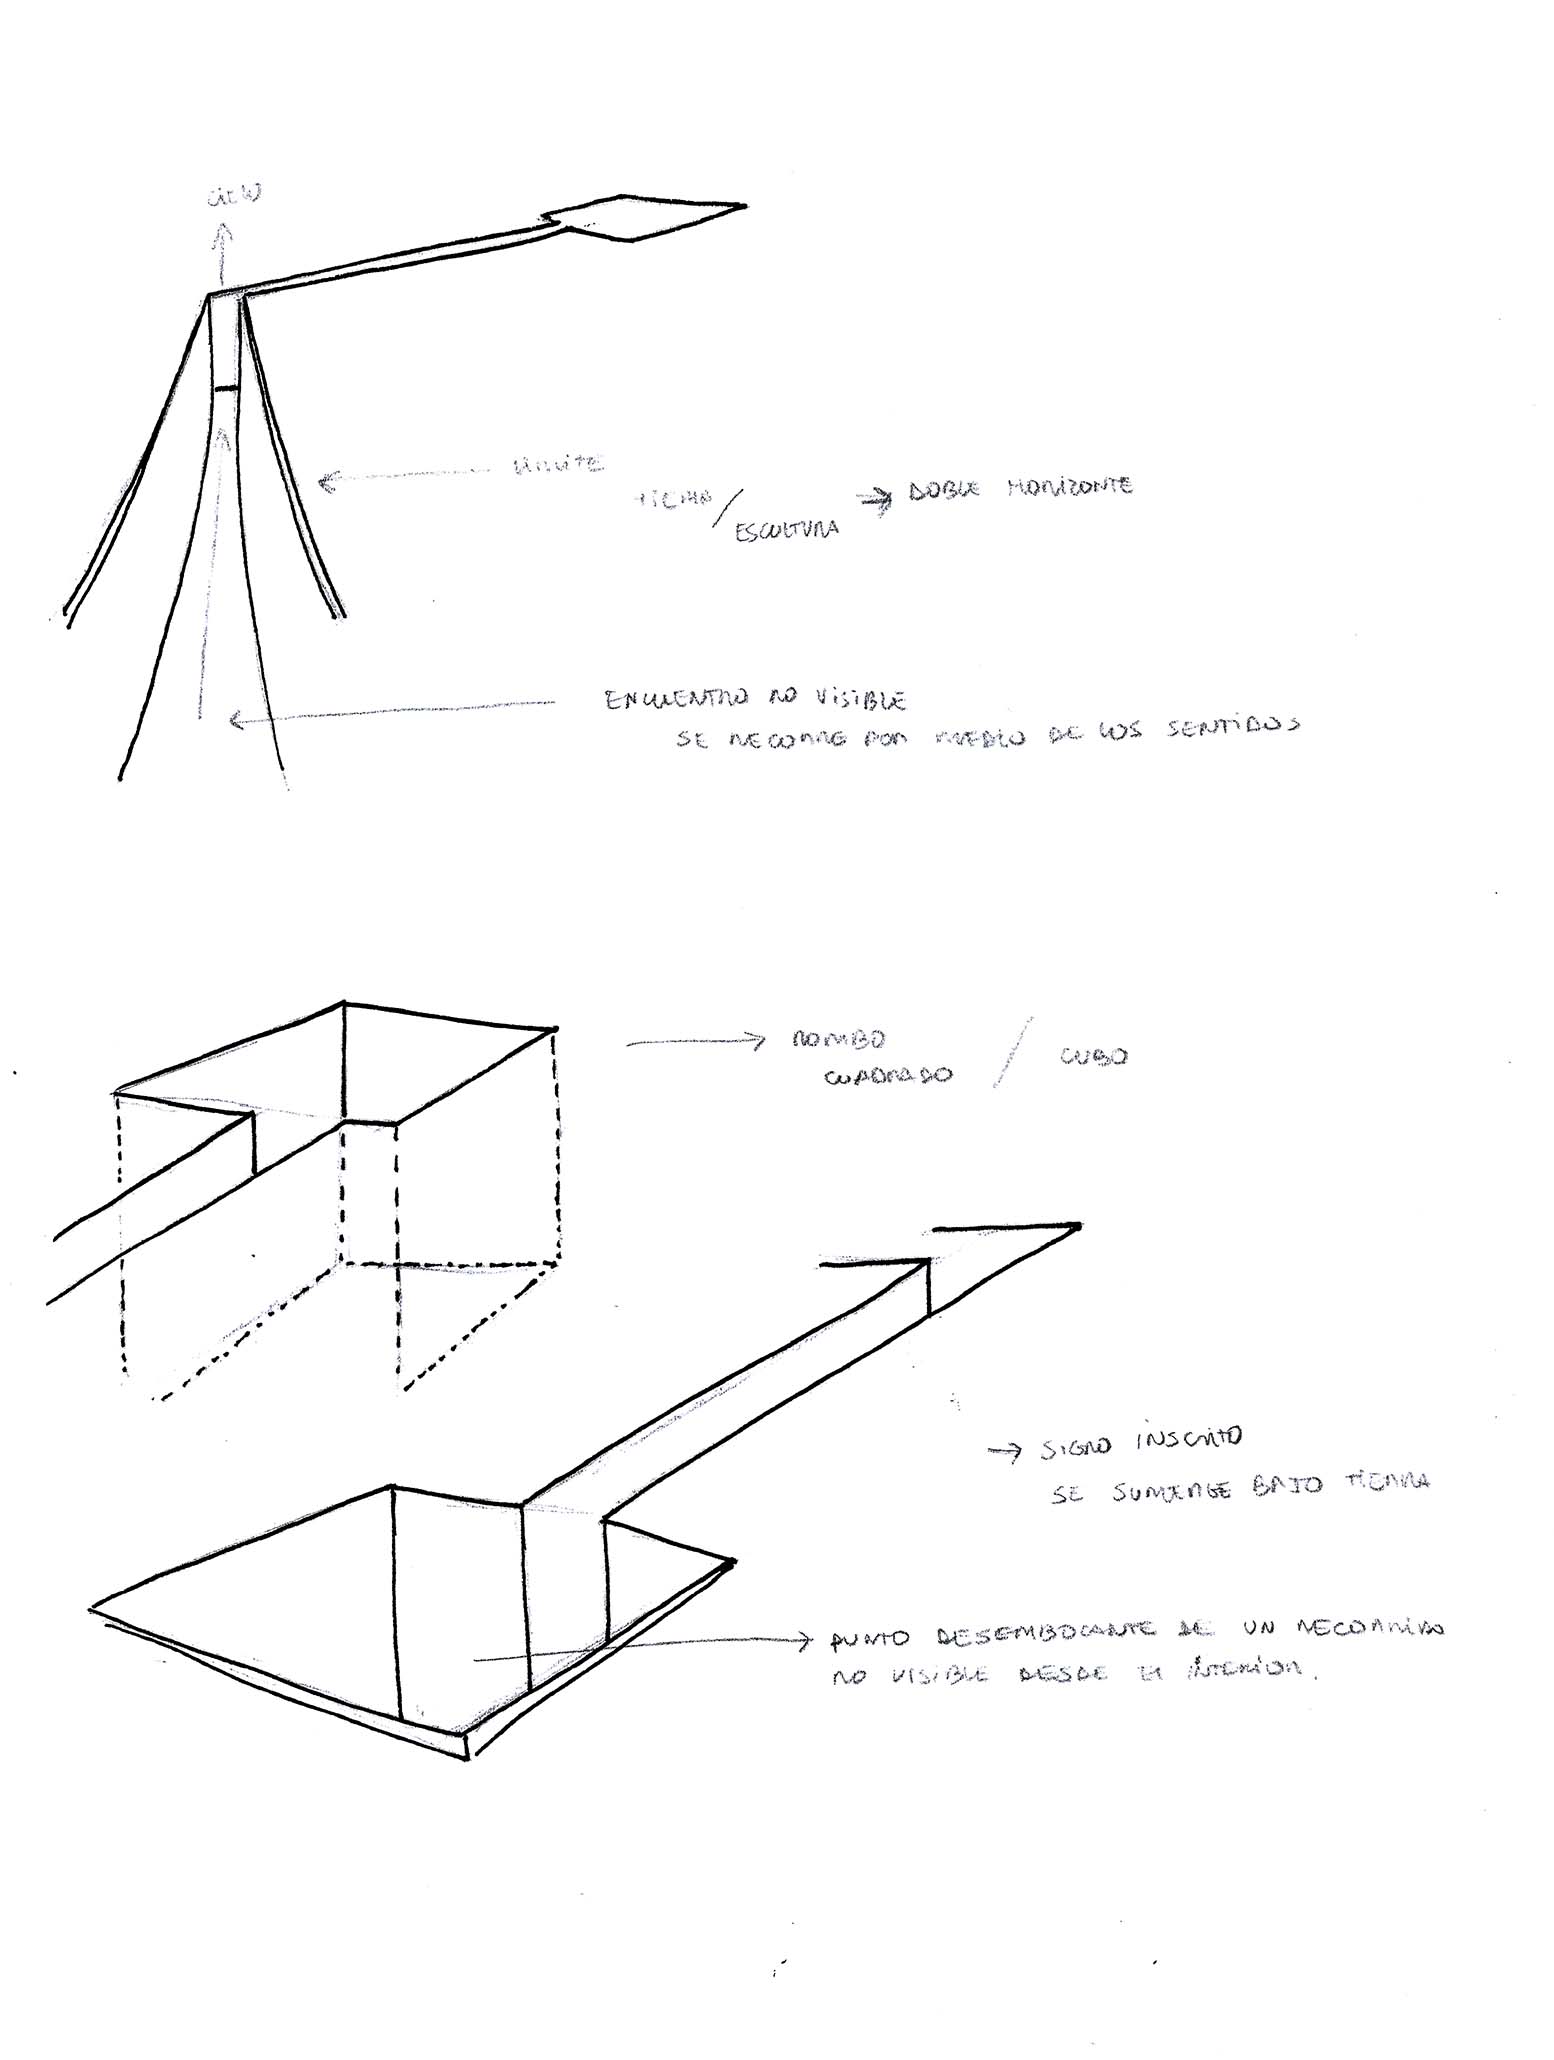 CIELO
LIMITE
TIERRA / ESCULTURA → DOBLE HORIZONTE
ENCUENTRO NO VISIBLE
SE RECORRE POR MEDIO DE LOS SENTIDOS
→ ROMBO
CUADRADO / CUBO
→ SIGNO INSCRITO
SE SUMERGE BAJO TIERRA
PUNTO DESEMBOCANTE DE UN RECORRIDO
NO VISIBLE DESDE EL INTERIOR.